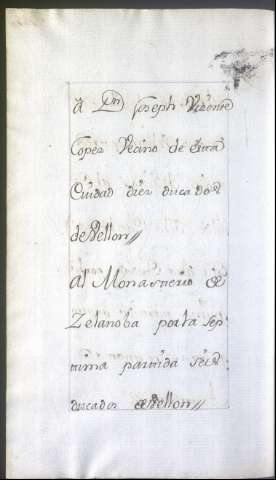 a Dn Joseph Vizente
Lopez Vecino de esta
Ciudad diez ducados
de Vellon//
al Monasterio de
Zelanoba por la sep
tima partida seis
ducados de Vellon//